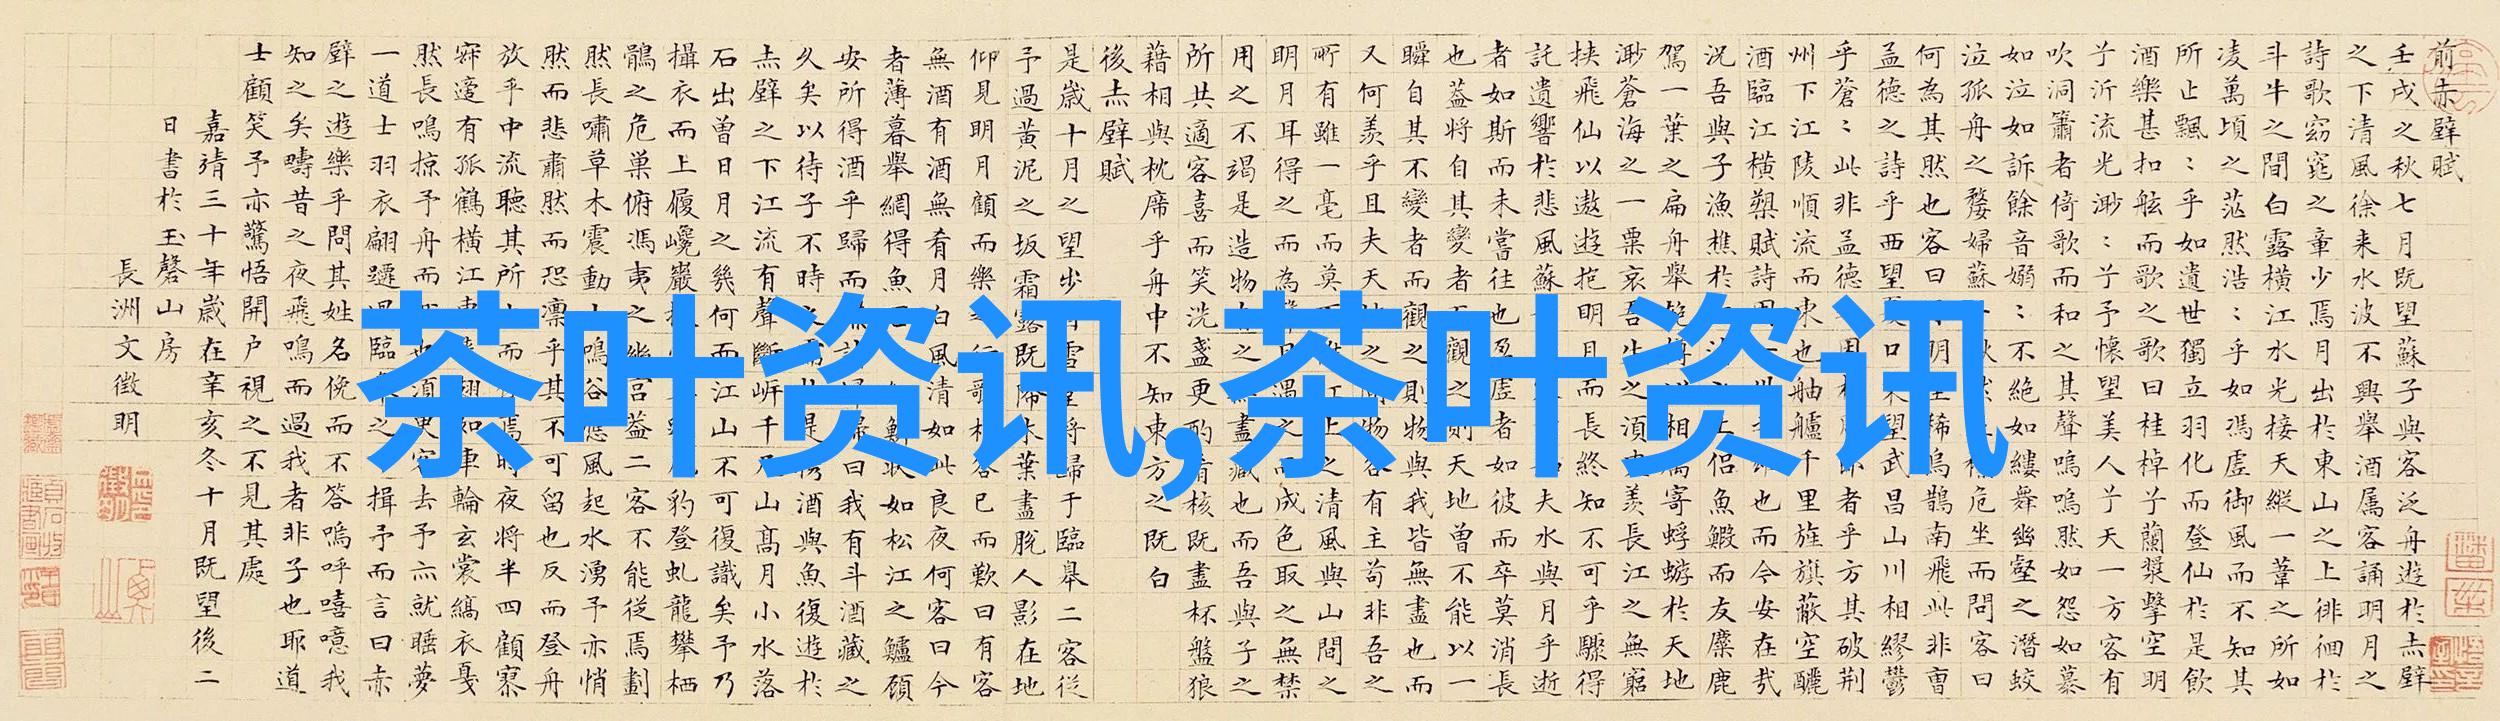 前赤壁賦
壬戌之秋七月既望蘇子與客泛舟遊於赤壁
之下清風徐来水波不興舉酒属客誦明月之
詩歌窈窕之章少焉月出於東山之上徘徊於
斗牛之間白露橫江水光接天縱一葦之所如
凌萬頃之茫然浩〻乎如馮虛御風而不知其
所止飄〻乎如遺世獨立羽化而登仙於是飲
酒樂甚扣舷而歌之歌曰桂棹兮蘭槳擊空明
兮泝流光渺〻兮予懷望美人兮天一方客有
吹洞簫者倚歌而和之其聲嗚嗚然如怨如慕
如泣如訴餘音嫋〻不絕如縷舞幽壑之潛蛟
泣孤舟之嫠婦蘇危坐而問客曰
何為其然也客曰明稀烏鵲南飛此非曹
孟德之詩乎西望夏口望武昌山川相繆鬱
乎蒼〻此非孟德者乎方其破荆
州下江陵順流而東也舳艫千里旌旗蔽空釃
酒臨江橫槊賦詩也而今安在㢤
況吾與子漁樵於侶魚鰕而友麋鹿
駕一葉之扁舟舉相寄蜉蝣於天地
渺蒼海之一粟哀吾生之須羨長江之無窮
挾飛仙以遨遊抱明月而長終知不可乎驟得
託遺響於悲風蘇夫水與月乎逝
者如斯而未嘗往也盈虛者如彼而卒莫消長
也蓋將自其變者而觀之則天地曾不能以一
瞬自其不變者而觀之則物與我皆無盡也而
又何羨乎且夫天地之間物各有主苟非吾之
所有雖一毫而莫江上之清風與山間之
明月耳得之而為聲遇之而成色取之無禁
用之不竭是造物之盡藏也而吾與子之
所共適客喜而笑洗盞更酌肴核既盡杯盤狼
藉相與枕席乎舟中不知東方之既白
後赤壁賦
是歲十月之望步雪堂將歸于臨皋二客從
予過黃泥之坂霜露既降木葉盡脫人影在地
仰見明月顧而樂之行歌相答已而歎曰有客
無酒有酒無肴月白風清如此良夜何客曰今
者薄暮舉網得魚如松江之鱸顧
安所得酒乎歸而歸曰我有斗酒藏之
久矣以待子不時之需於是携酒與魚復遊於
赤壁之下江流有聲斷岸千尺山高月小水落
石出曾日月之幾何而江山不可復識矣予乃
攝衣而上履巉巖豹登虬龍攀栖
鶻之危巢俯馮夷之幽宮蓋二客不能從焉劃
然長嘯草木震動山鳴谷應風起水湧予亦悄
然而悲肅然而恐凛乎其不可留也反而登舟
放乎中流聽其所止而焉時夜將半四顧寡
寂適有孤鶴橫江東翅如車輪玄裳縞衣戛
然長鳴掠予舟而也湏臾客去予亦就睡夢
一道士羽衣翩躚過臨之揖予而言曰赤
壁之遊樂乎問其姓名俛而不答嗚呼噫嘻我
知之矣疇昔之夜飛鳴而過我者非子也耶道
士顧笑予亦驚悟開户視之不見其處
嘉靖三十年歲在辛亥冬十月既望後二
日書於玉磬山房
長洲文徵明
茶叶资讯,茶叶资讯